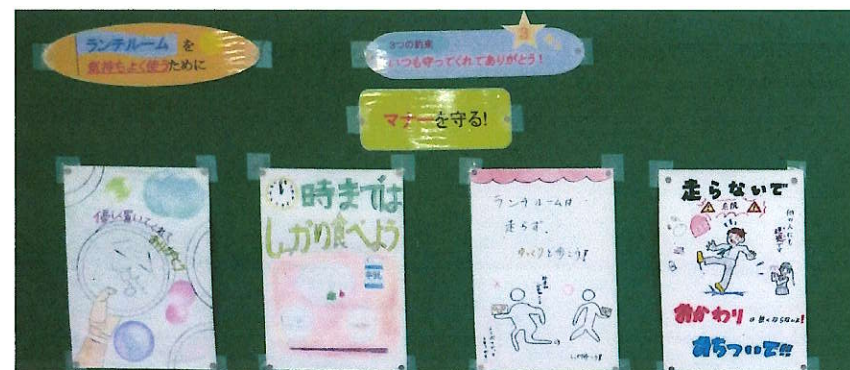 ランチルーム を
気持ちよく使うために
3つの約束
3
いつも守ってくれてありがとう!
マナーを守る!
優しく置いてくれて
ありがとう
時までは
しっかり食べよう
牛乳
ランチルームは
走らず、
ゆっくりと歩こう!
走らないで
危険
他の人にも
迷惑です
おかわり は無くならないよ!
おちついて!!